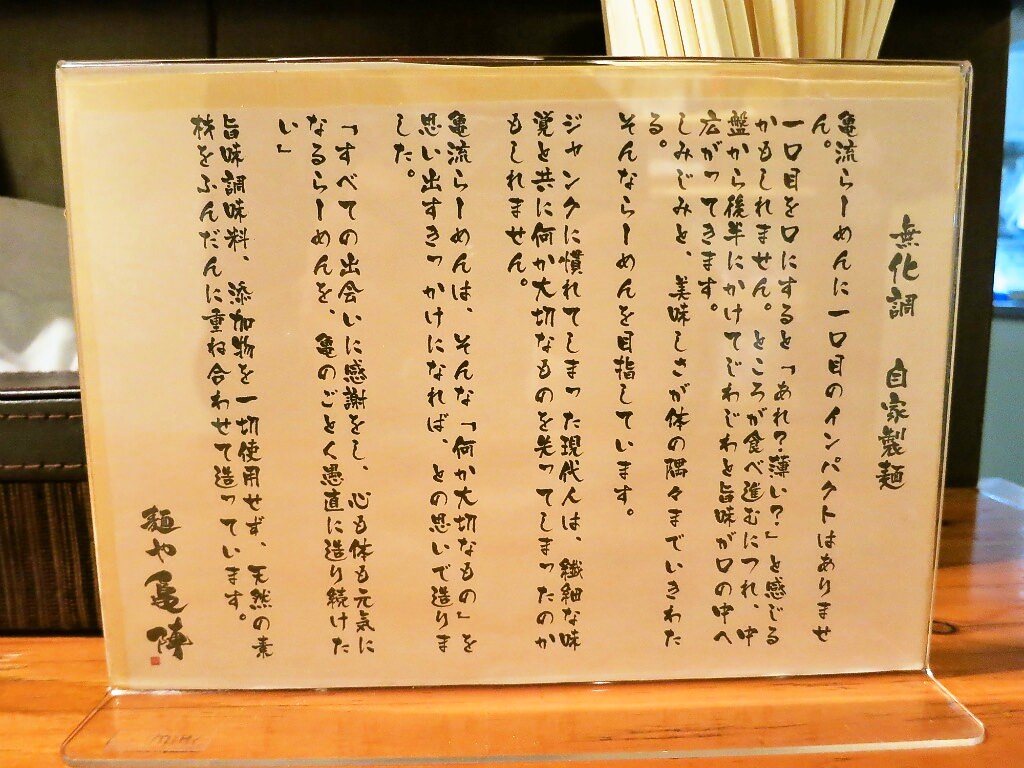 無化調 自家製麺
亀流らーめんに一口目のインパクトはありませ
ん。
一口目を口にすると「あれ?薄い?」と感じる
かもしれません。ところが食べ進むにつれ、中
盤から後半にかけてじわじわと旨味が口の中へ
広がってきます。
しみじみと、美味しさが体の隅々までいきわた
る。
そんならーめんを目指しています。
ジャンクに慣れてしまった現代人は、繊細な味
覚と共に何か大切なものを失ってしまったのか
もしれません。
亀流らーめんは、そんな「何か大切なもの」を
思い出すきっかけになれば、との思いで造りま
した。
「すべての出会いに感謝をし、心も体も元気に
なるらーめんを、亀のごとく愚直に造り続けた
い」
旨味調味料、添加物を一切使用せず、天然の素
材をふんだんに重ね合わせて造っています。
麺や亀陣